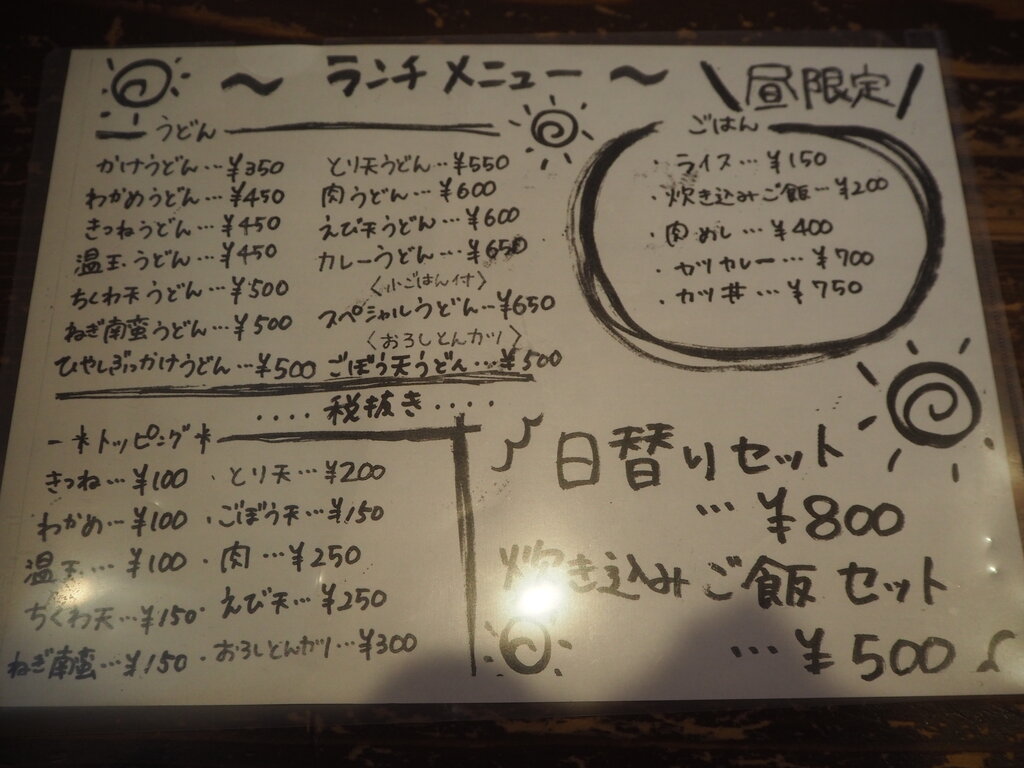 〜 ランチメニュー 〜 \昼限定/
うどん
かけうどん…¥350
わかめうどん…¥450
きつねうどん…¥450
温玉うどん…¥450
ちくわ天うどん…¥500
ねぎ南蛮うどん…¥500
ひやしぶっかけうどん…¥500
とり天うどん…¥550
肉うどん…¥600
えび天うどん…¥600
カレーうどん…¥650
〈小ごはん付〉
スペシャルうどん…¥650
〈おろしとんカツ〉
ごぼう天うどん…¥500
....税抜き....
ごはん
・ライス…¥150
・炊き込みご飯…¥200
・肉めし…¥400
・カツカレー…¥700
・カツ丼…¥750
*トッピング*
きつね…¥100
わかめ…¥100
温玉…¥100
ちくわ天…¥150
ねぎ南蛮…¥150
・とり天…¥200
・ごぼう天…¥150
・肉…¥250
・えび天…¥250
・おろしとんカツ…¥300
日替りセット
…¥800
炊き込みご飯セット
…¥500